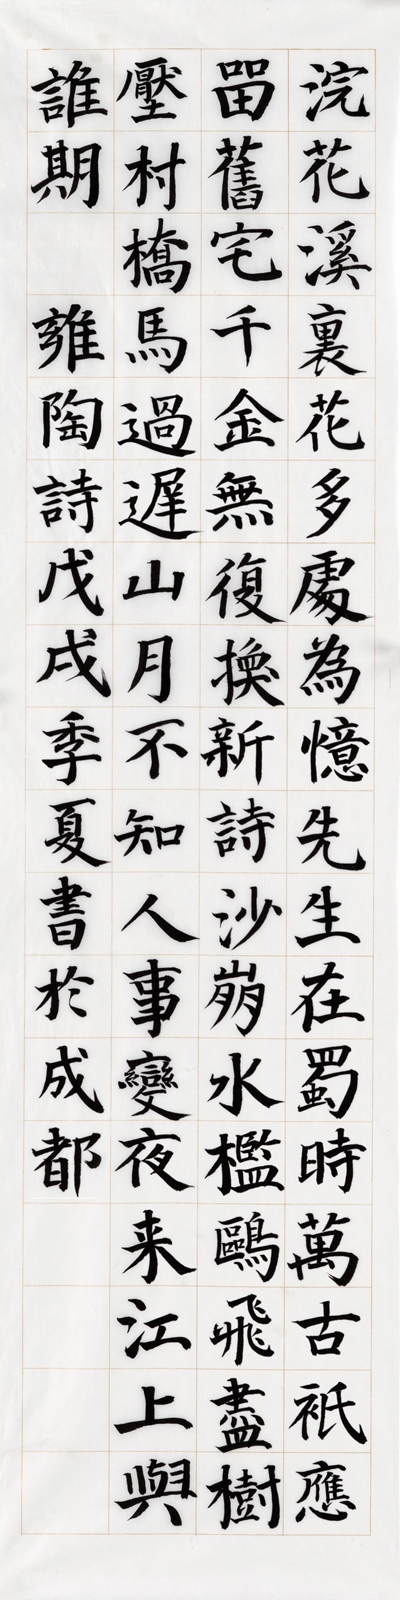 浣花溪裏花多處為憶先生在蜀時萬古衹應
㽞舊宅千金無復換新詩沙崩水檻鷗飛盡樹
壓村橋馬過遲山月不知人事變夜来江上與
誰期 雍陶詩戊戌季夏書於成都